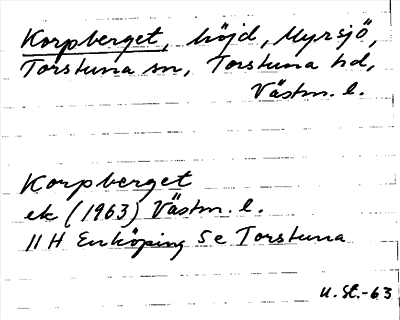 Korpberget, höjd, Myrsjö,
Torstuna sn, Torstuna hd,
Västm. l.
Korpberget
ek (1963) Västm. l.
11 H Enköping Se Torstuna
U. St. -63